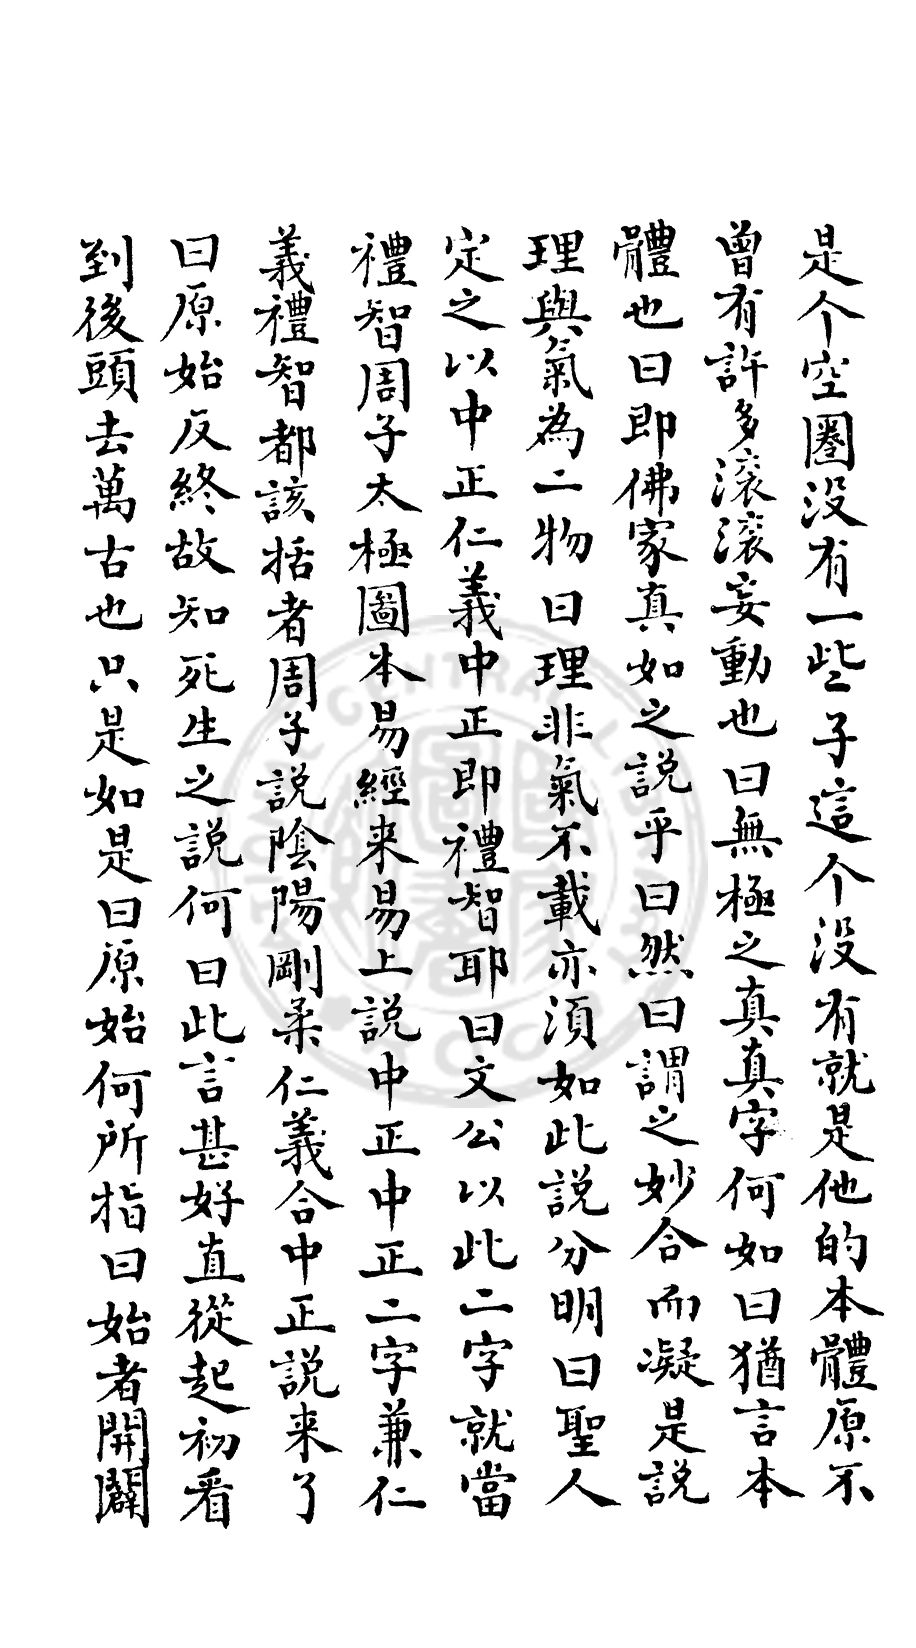 是个空圏没有一些子這个没有就是他的本體原不
曾有許多滚滚妄動也曰無極之真真字何如曰猶言本
體也曰即佛家真如之説乎曰然曰謂之妙合而凝是説
理與氣為二物曰理非氣不載亦須如此説分明曰聖人
定之以中正仁義中正即禮智耶曰文公以此二字就當
禮智周子太極圖本易經来易上説中正中正二字兼仁
義禮智都該括者周子説陰陽剛柔仁義合中正説来了
曰原始反終故知死生之説何曰此言甚好直從起初看
到後頭去萬古也只是如是曰原始何所指曰始者開闢